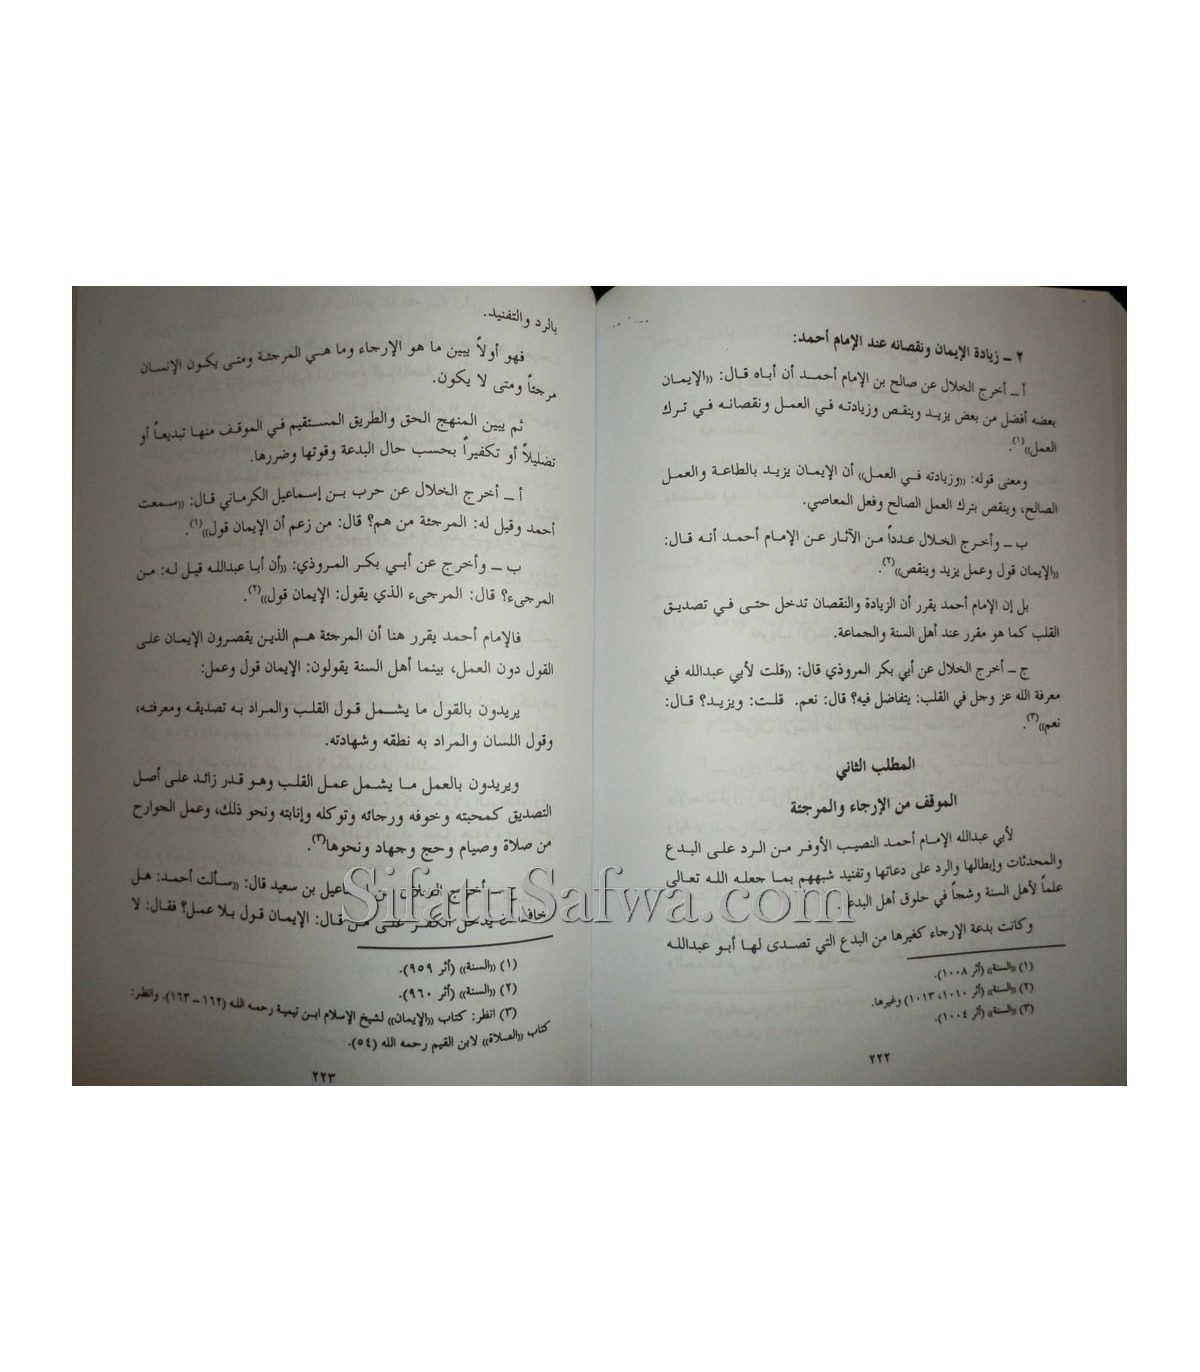 ٢ ــ زيادة الإيمان ونقصانه عند الإمام أحمد:
أ ــ أخرج الخلال عن صالح بن الإمام أحمد أن أباه قال: «الإيمان
بعضه أفضل من بعض يزيد وينقص وزيادته في العمل ونقصانه في ترك
العمل»(١).
ومعنى قوله: «وزيادته في العمل» أن الإيمان يزيد بالطاعة والعمل
الصالح، وينقص بترك العمل الصالح وفعل المعاصي.
ب ــ وأخرج الخلال عدداً من الآثار عن الإمام أحمد أنه قال:
«الإيمان قول وعمل يزيد وينقص»(٢).
بل إن الإمام أحمد يقرر أن الزيادة والنقصان تدخل حتى في تصديق
القلب كما هو مقرر عند أهل السنة والجماعة.
ج ــ أخرج الخلال عن أبي بكر المروذي قال: «قلت لأبي عبدالله في
معرفة الله عز وجل في القلب: يتفاضل فيه؟ قال: نعم. قلت: ويزيد؟ قال:
نعم»(٣).
المطلب الثاني
الموقف من الإرجاء والمرجئة
لأبي عبدالله الإمام أحمد النصيب الأوفر من الرد على البدع
والمحدثات وإبطالها والرد على دعاتها وتفنيد شبههم بما جعله الله تعالى
علماً لأهل السنة وشجاً في حلوق أهل البدع.
وكانت بدعة الإرجاء كغيرها من البدع التي تصدى لها أبو عبدالله
(١) «السنة» (أثر ١٠٠٨).
(٢) «السنة» (أثر ١٠١٠، ١٠١٣) وغيرها.
(٣) «السنة» (أثر ١٠٠٤).
٢٢٢
بالرد والتفنيد.
فهو أولاً يبين ما هو الإرجاء وما هي المرجئة ومتى يكون الإنسان
مرجئاً ومتى لا يكون.
ثم يبين المنهج الحق والطريق المستقيم في الموقف منها تبديعاً أو
تضليلاً أو تكفيراً بحسب حال البدعة وقوتها وضررها.
أ ــ أخرج الخلال عن حرب بن إسماعيل الكرماني قال: «سمعت
أحمد وقيل له: المرجئة من هم؟ قال: من زعم أن الإيمان قول»(١).
ب ــ وأخرج عن أبي بكر المروذي: «أن أبا عبدالله قيل له: من
المرجىء؟ قال: المرجىء الذي يقول: الإيمان قول»(٢).
فالإمام أحمد يقرر هنا أن المرجئة هم الذين يقصرون الإيمان على
القول دون العمل، بينما أهل السنة يقولون: الإيمان قول وعمل:
يريدون بالقول ما يشمل قول القلب والمراد به تصديقه ومعرفته،
وقول اللسان والمراد به نطقه وشهادته.
ويريدون بالعمل ما يشمل عمل القلب وهو قدر زائد على أصل
التصديق كمحبته وخوفه ورجائه وتوكله وإنابته ونحو ذلك، وعمل الجوارح
من صلاة وصيام وحج وجهاد ونحوها(٣).
ــ أخرج الخلال عن إسماعيل بن سعيد قال: «سألت أحمد: هل
تخاف أن يدخل الكفر على من قال: الإيمان قول بلا عمل؟ فقال: لا
(١) «السنة» (أثر ٩٥٩).
(٢) «السنة» (أثر ٩٦٠).
(٣) انظر: كتاب «الإيمان» لشيخ الإسلام ابن تيمية رحمه الله (١٦٢ ــ ١٦٣). وانظر:
كتاب «الصلاة» لابن القيم رحمه الله (٥٤).
٢٢٣
SifatuSafwa.com